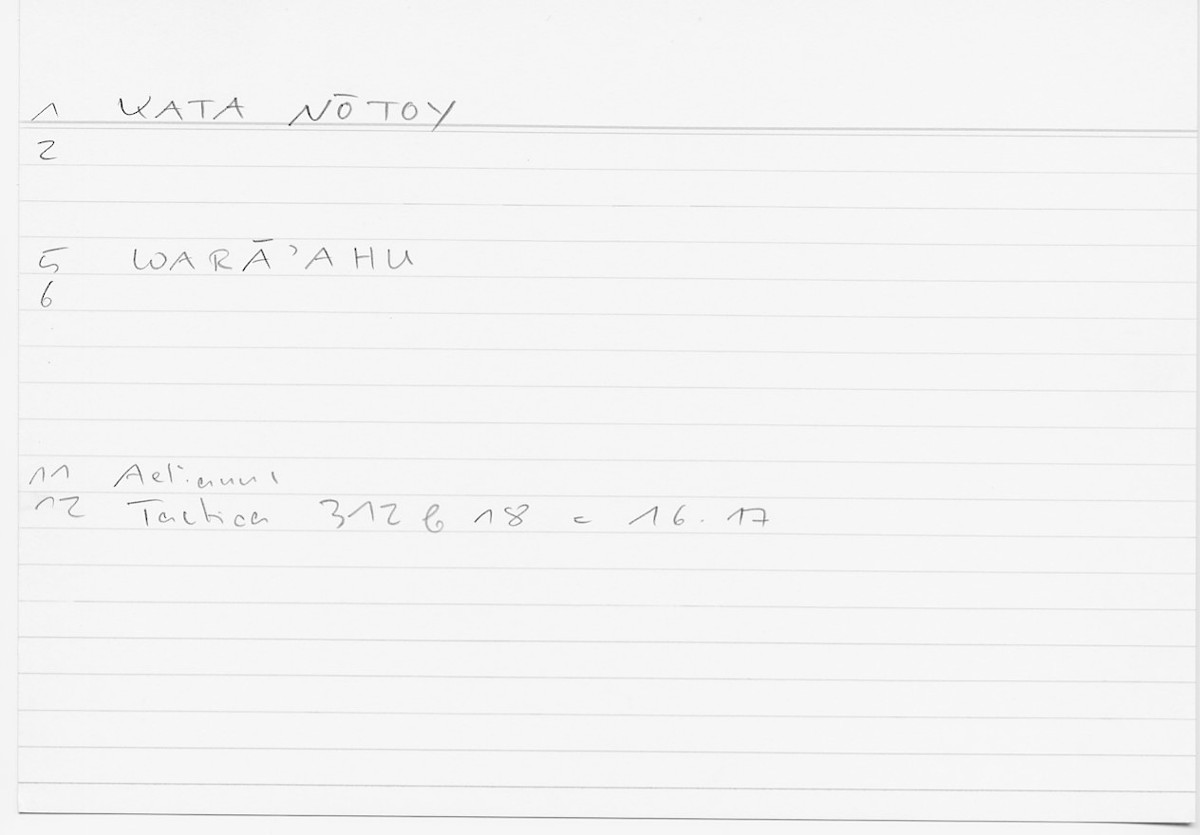 1 KATA NŌTOY
2
5 WARĀ'AHU
6
11 Aelianus
12 Tactica 312 b 18 = 16.17